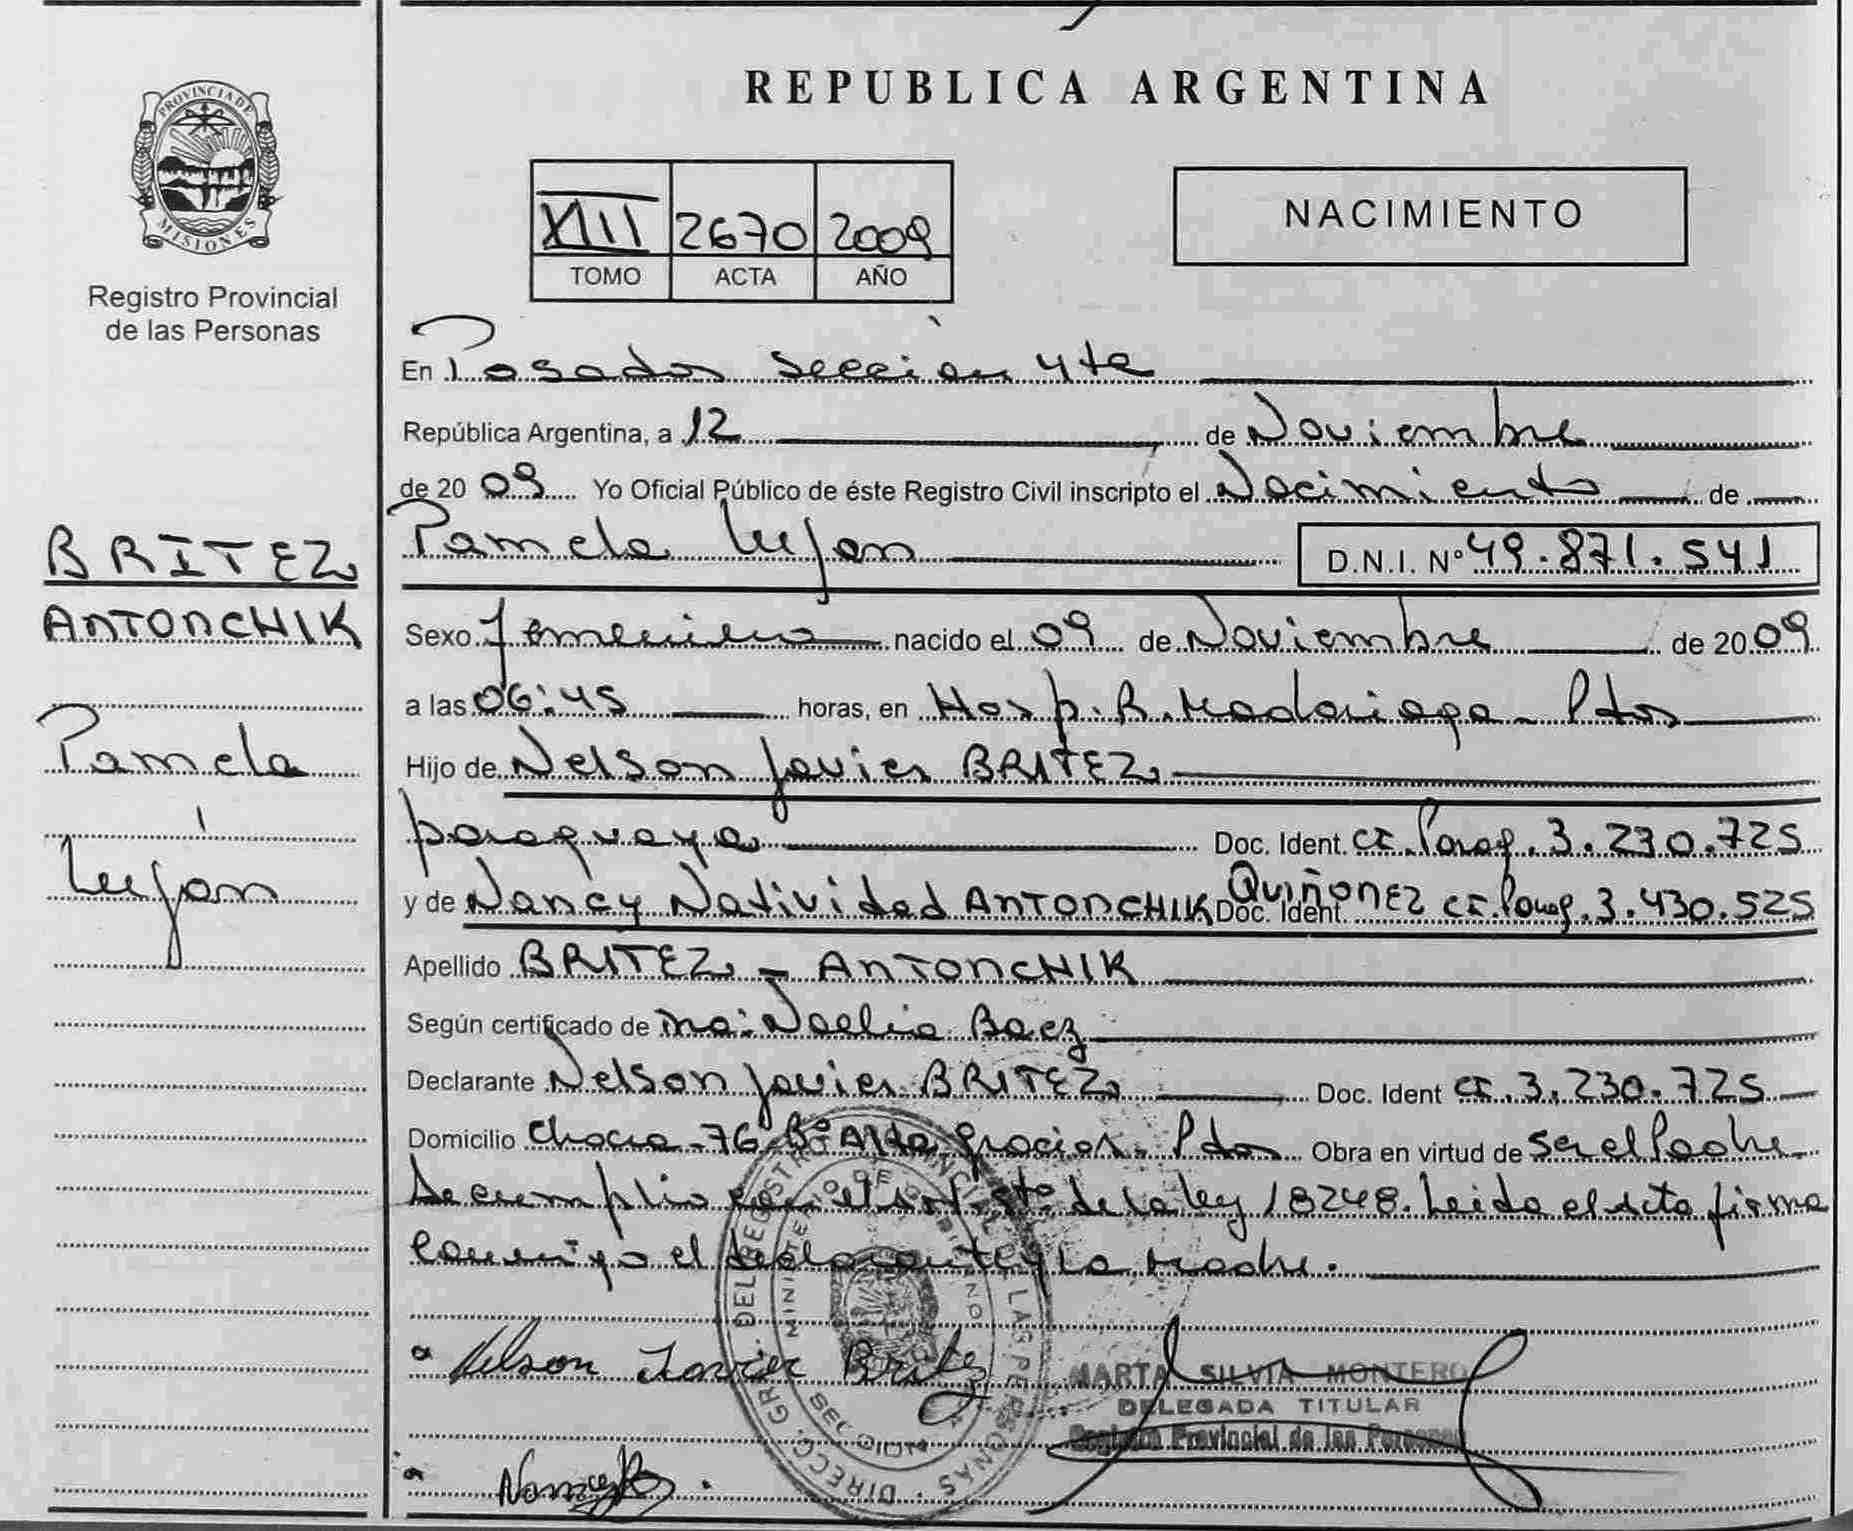 PROVINCIA DE
MISIONES
Registro Provincial
de las Personas
BRITEZ
ANTONCHIK
Pamela
Luján
REPUBLICA ARGENTINA
XIII 2670 2009
TOMO ACTA AÑO
NACIMIENTO
En Posadas Sección 4ta
República Argentina, a 12 de Noviembre
de 2009 Yo Oficial Público de éste Registro Civil inscripto el Nacimiento de
Pamela Lujan D.N.I. Nº 49.871.541
Sexo femenino nacido el 09 de Noviembre de 2009
a las 06:45 horas, en Hosp. R. Madariaga - Pdas
Hijo de Nelson Javier BRITEZ
paraguaya Doc. Ident. CI. Parag. 3.230.725
y de Nancy Natividad ANTONCHIK QUIÑONEZ Doc. Ident. CI. Parag. 3.430.525
Apellido BRITEZ - ANTONCHIK
Según certificado de Noelia Baez
Declarante Nelson Javier BRITEZ Doc. Ident CI. 3.230.725
Domicilio Chacra 76 Bº Alta Gracia - Pdas Obra en virtud de ser el Padre
Se cumplio con el art. 5to de la ley 18248. Leida el acta firma
conmigo el declarante y la Madre.
Nelson Javier Britez
MARTA SILVIA MONTERO
DELEGADA TITULAR
Registro Provincial de las Personas
DIRECC. GR. DEL REGISTRO PROVINCIAL DE LAS PERSONAS
MINISTERIO DE GOBIERNO